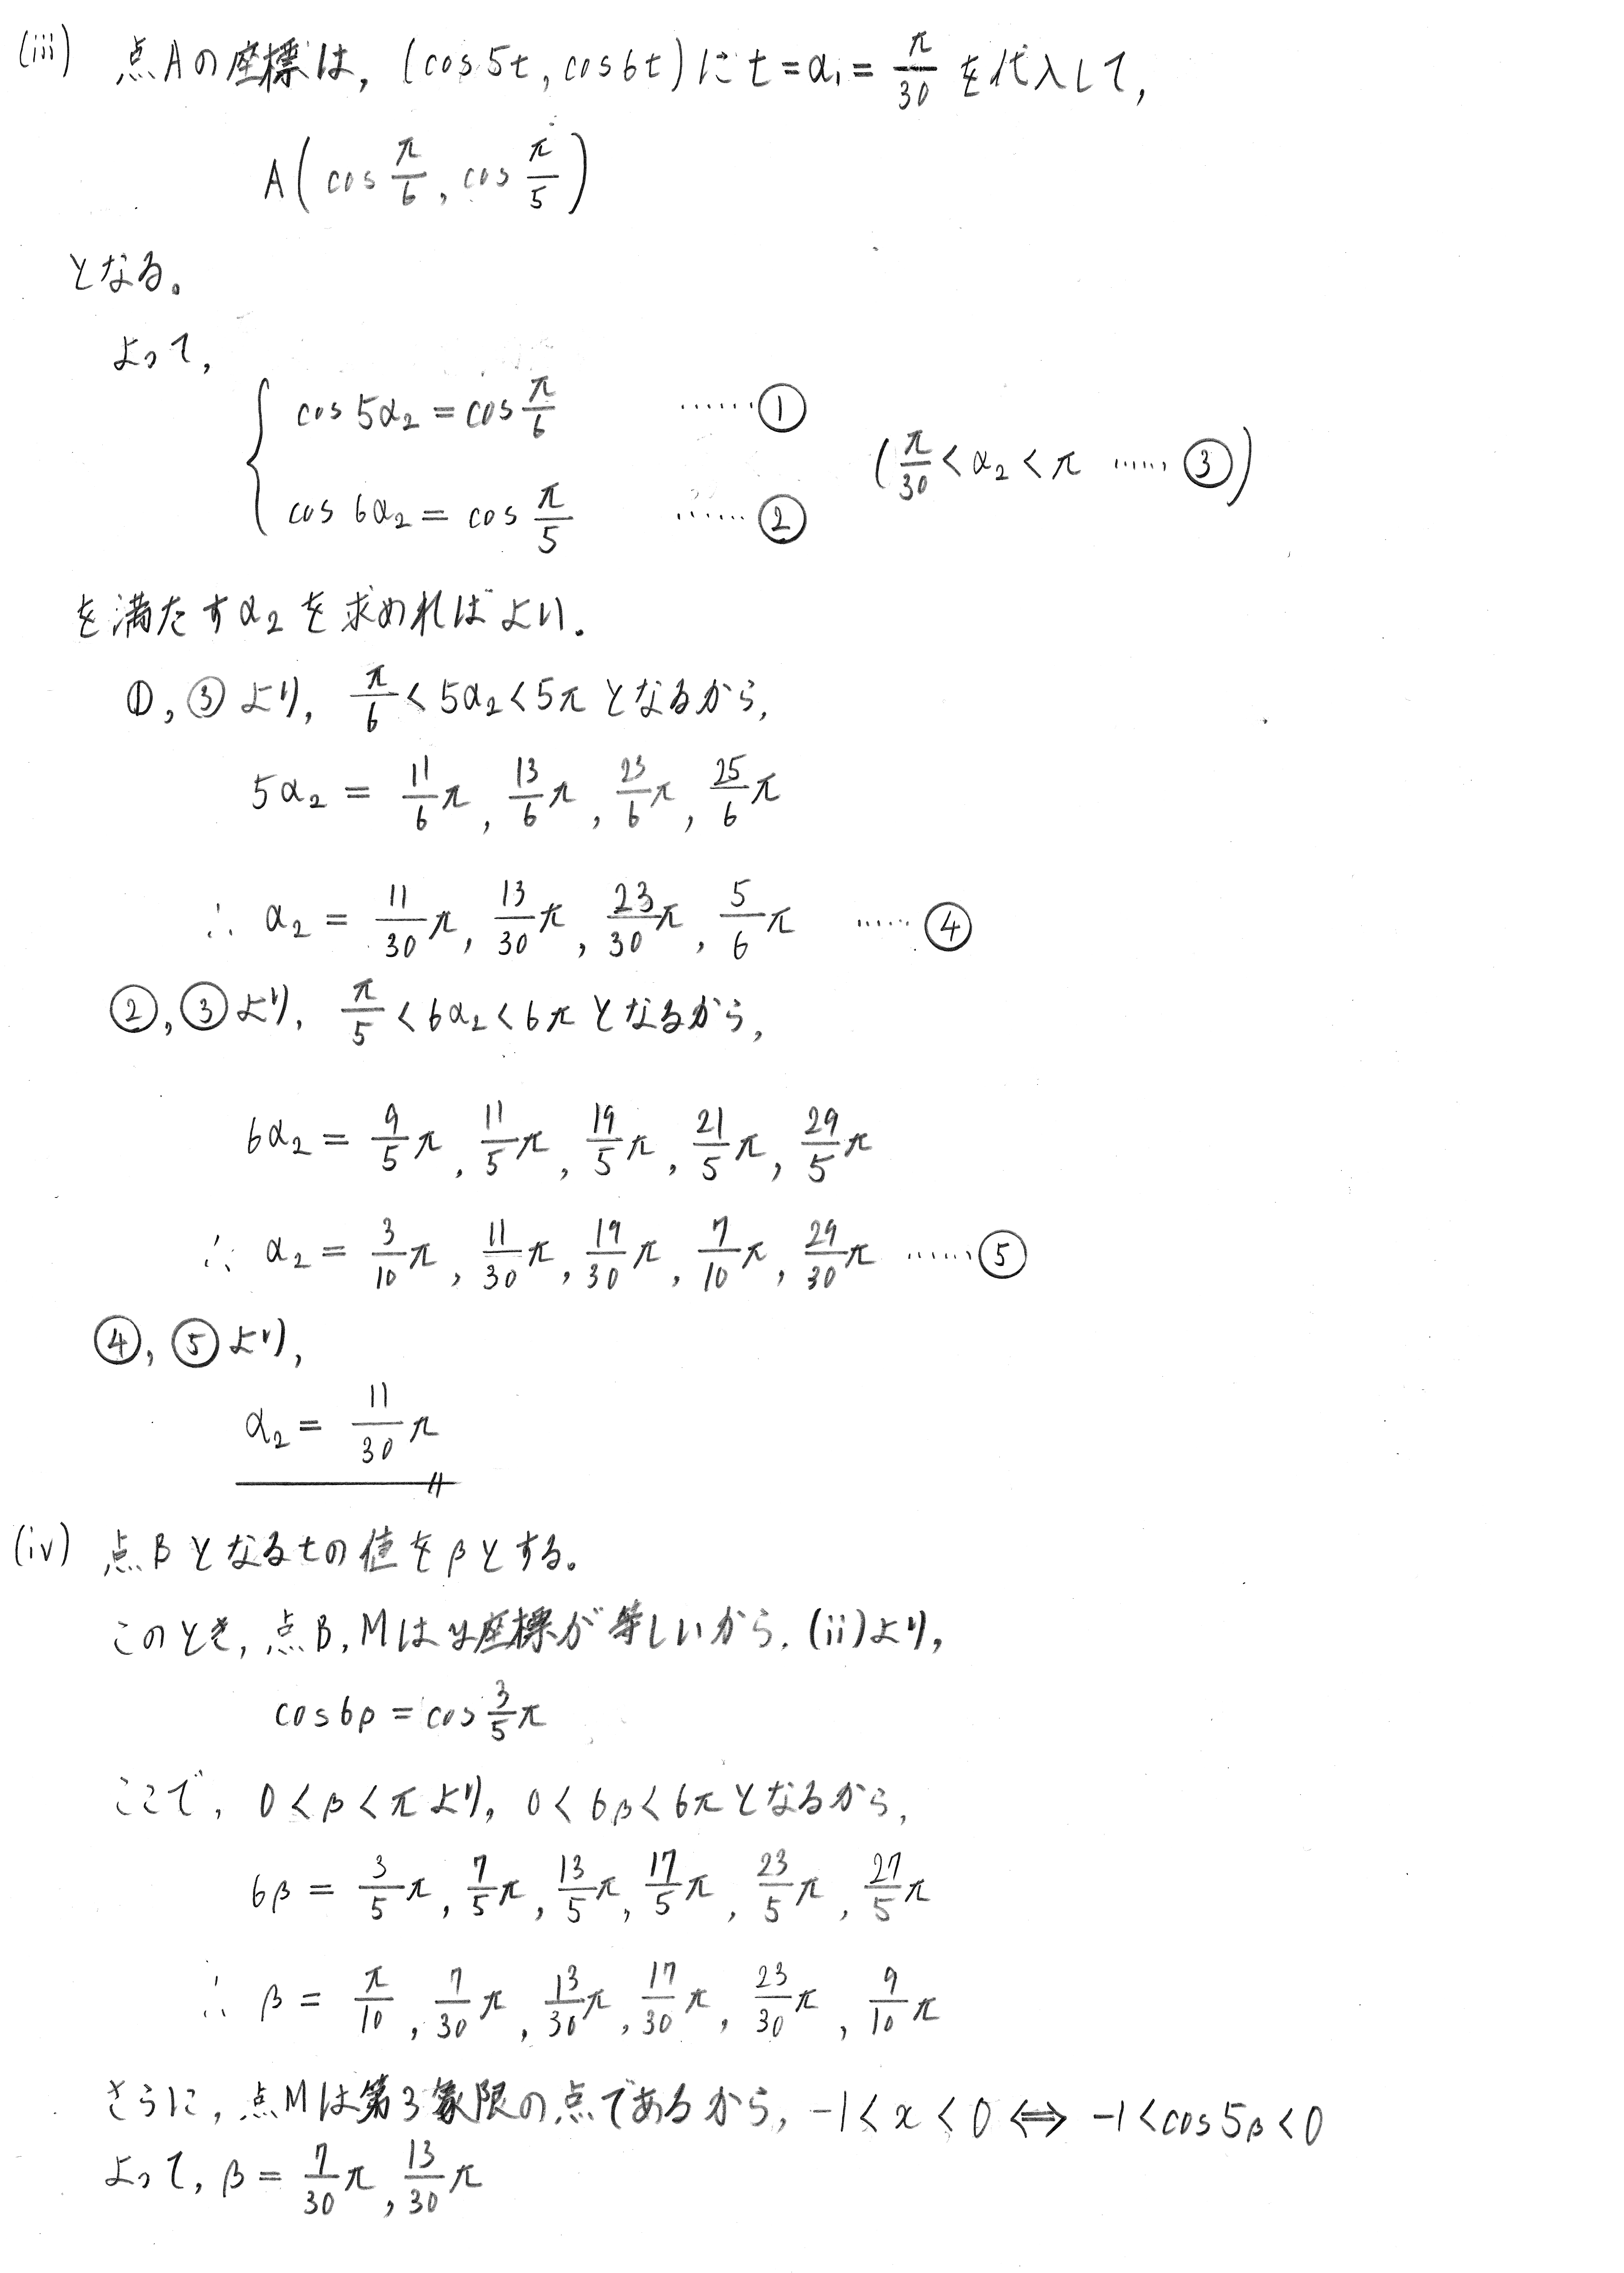 (iii) 点Aの座標は, (cos5t, cos6t)にt=α₁=π/30を代入して,
A(cos π/6, cos π/5)
となる。
よって,
cos5α₂=cos π/6 ……①
(π/30<α₂<π ……③)
cos6α₂=cos π/5 ……②
を満たすα₂を求めればよい.
①,③より, π/6<5α₂<5πとなるから,
5α₂=11/6π, 13/6π, 23/6π, 25/6π
∴ α₂=11/30π, 13/30π, 23/30π, 5/6π ……④
②,③より, π/5<6α₂<6πとなるから,
6α₂=9/5π, 11/5π, 19/5π, 21/5π, 29/5π
∴ α₂=3/10π, 11/30π, 19/30π, 7/10π, 29/30π ……⑤
④,⑤より,
α₂=11/30π
(iv) 点Bとなるtの値をβとする。
このとき, 点B,Mはy座標が等しいから, (ii)より,
cos6β=cos 3/5π
ここで, 0<β<πより, 0<6β<6πとなるから,
6β=3/5π, 7/5π, 13/5π, 17/5π, 23/5π, 27/5π
∴ β=π/10, 7/30π, 13/30π, 17/30π, 23/30π, 9/10π
さらに, 点Mは第3象限の点であるから, -1<x<0⇔-1<cos5β<0
よって, β=7/30π, 13/30π